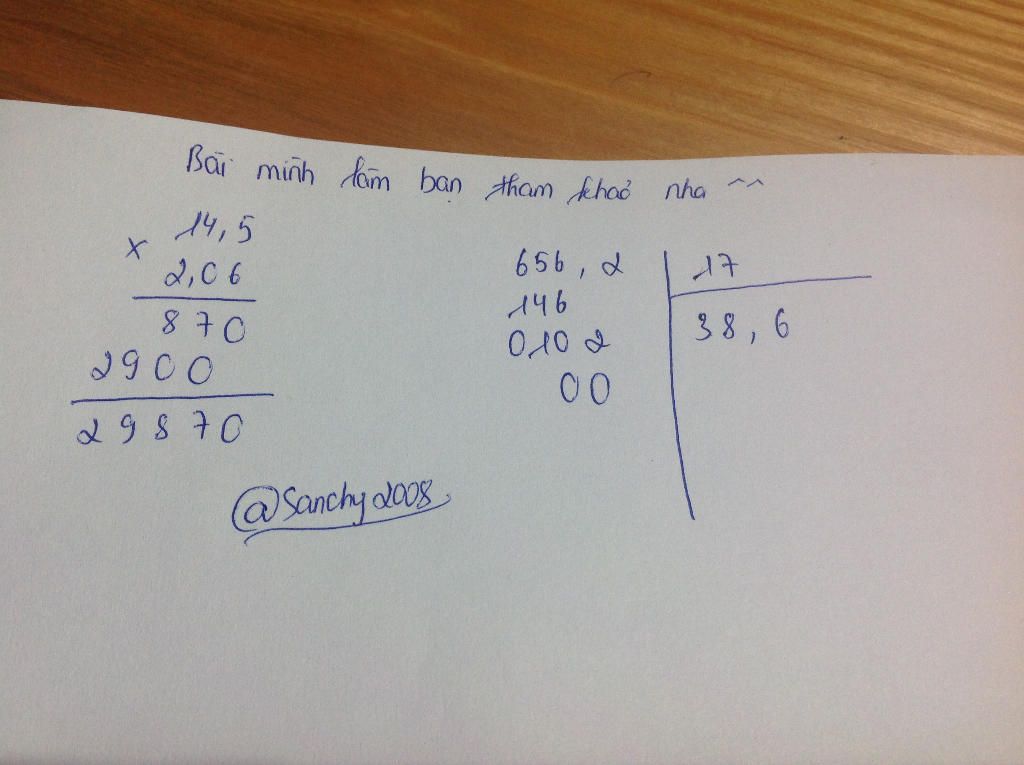 Bài mình làm bạn tham khảo nha ^^
× 14,5
2,06
870
2900
29870
656,2 17
146 38,6
0102
00
@Sanchy2008